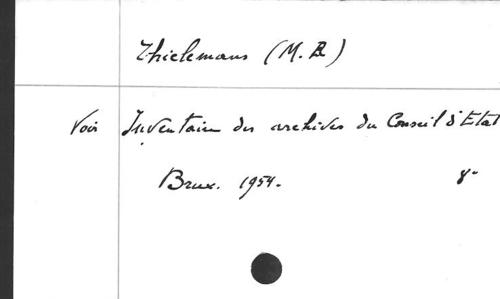 Thielemans (M.R)
Voir Inventaire des archives du Conseil d'Etat
Brux. 1954. 8°